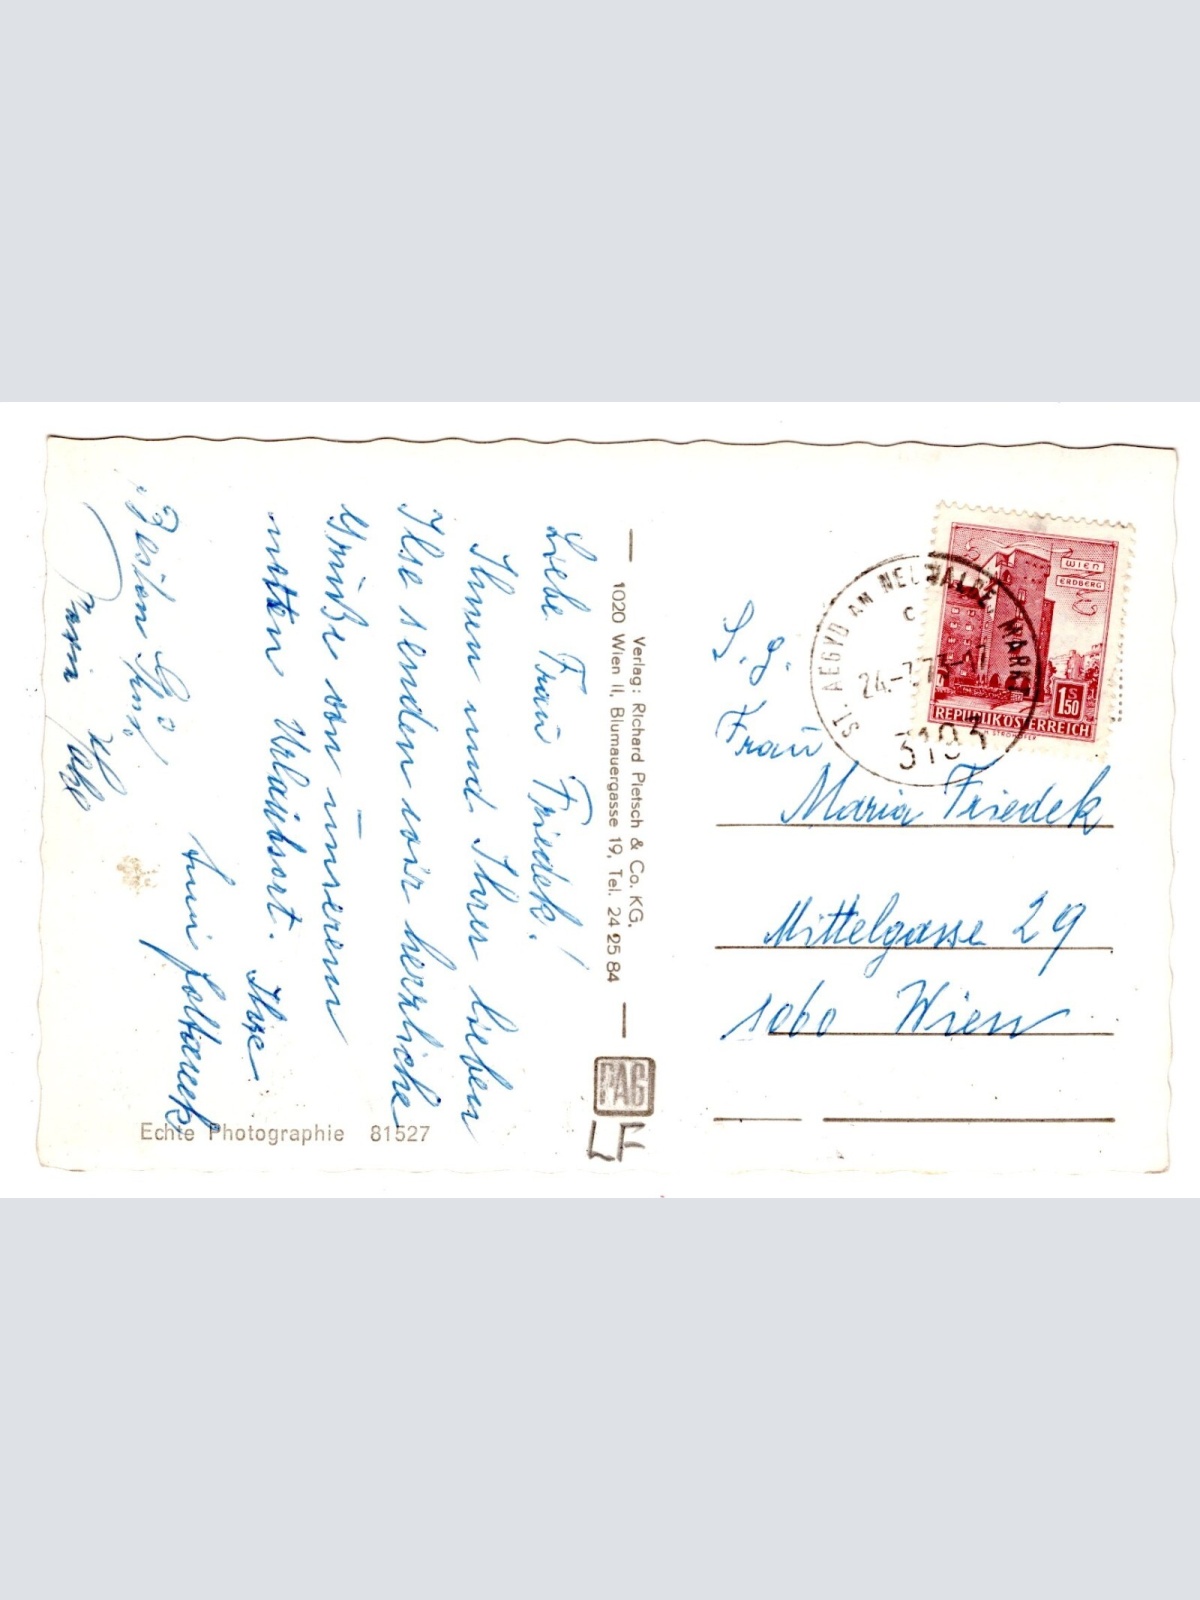 Liebe Frau Friedek!
Ihnen und Ihren lieben
Ilse senden wir herzliche
Grüße von unserem
netten Urlaubsort.
Ihre
Besten Gruß
Verlag: Richard Pietsch & Co. KG.
1020 Wien II, Blumauergasse 19, Tel. 24 25 84
PAG
LF
Echte Photographie 81527
WIEN
ERDBERG
S
1 50
REPUBLIK ÖSTERREICH
ST. AEGYD AM NEUWALDE, MARKT
C
3193
S. g.
Frau
Maria Friedek
Mittelgasse 29
1060 Wien